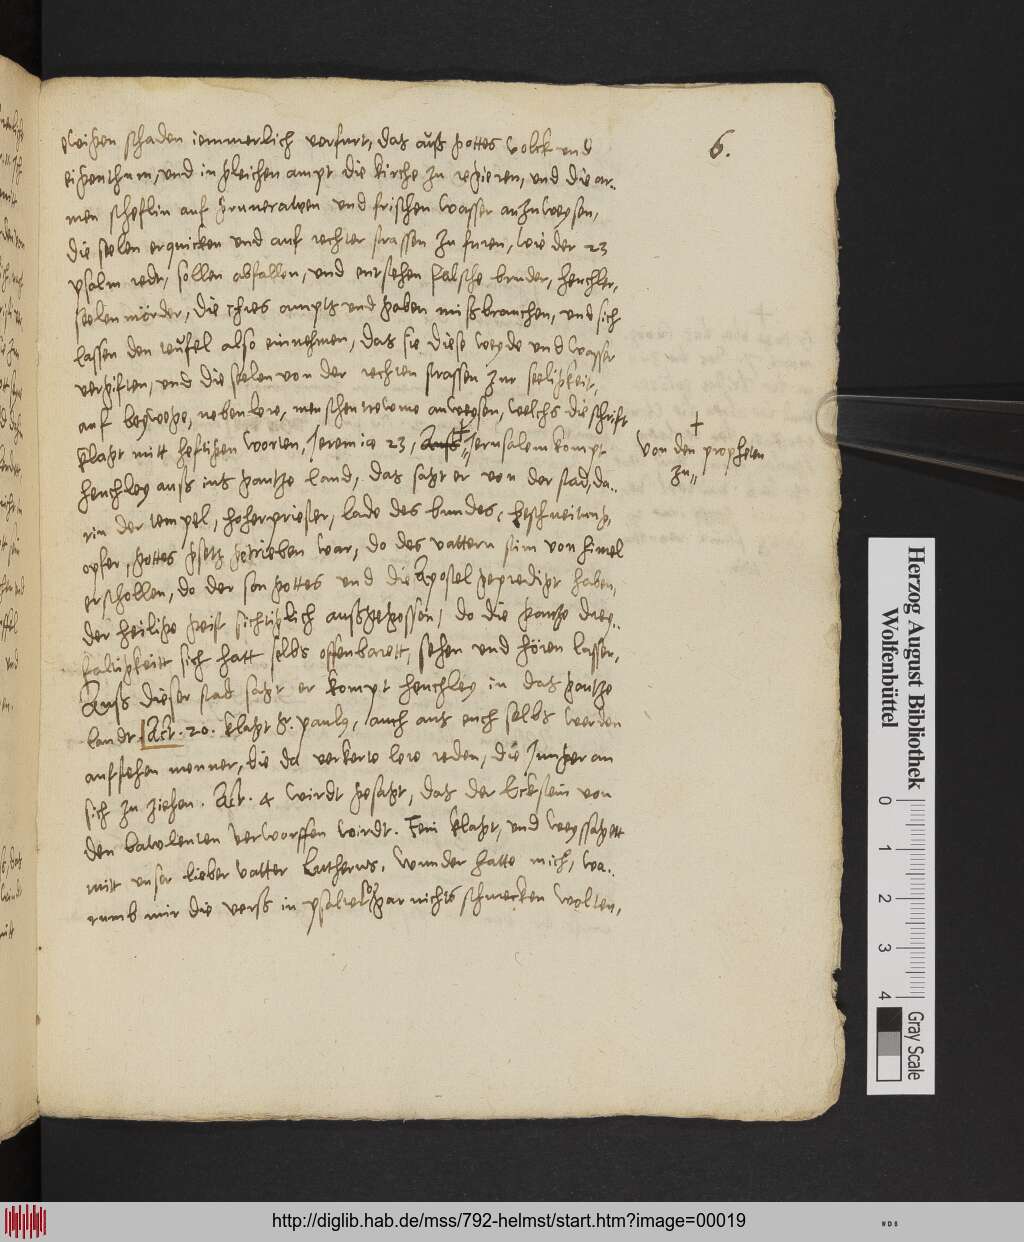 6.
ewigen schaden iemmerlich verfurt, das auß gottes volck und
eigenthum, und in gleichen ampt die kirche zu regieren, und die ar..
men scheflin auf grunerawen und frischen wasser anzuweysen,
die seelen erquicken und auf rechter strassen zu furen, wie der 23
psalm redt, sollen abfallen, und entstehen falsche bruder, heuchler,
seelen mörder, die ihres ampts und gaben mißbrauchen, und sich
lassen den teufel also einnehmen, das sie diese weyde und wasser
vergiften, und die seelen von der rechten strassen zur seeligkeit,
auf beywege, neben lere, menschen trewme anweysen, welchs die schrift
klagt mitt heftigen worten, Jeremie 23, Jerusalem kompt
+ von den propheten
zu,,
heuchley auß ins gantze land, das sagt er von der stad, da..
rin der tempel, hoherpriester, lade des bundes,
opfer, gottes gsetz getrieben war, do des vattern stim von himel
erschollen, do der son gottes und die Apostel gepredigt haben,
der heilige geist sichtiglich außgegossen, do die gantze drey..
faltigkeitt sich hatt selbs offenbarett, sehen und hören lassen,
Auß dieser stad sagt er kompt heuchley in das gantze
landt. Act. 20. klagt S. paulus, auch aus euch selbs werden
aufstehen menner, die da verkerte lere reden, die Junger an
sich zu ziehen. Act. 4 wirdt gesagt, das der Eckstein von
den bawleuten verworffen wirdt. Fein klagt, und weyssagett
mitt unser lieber vatter Lutherus, wunder hatte mich, wa..
rumb mir die verß in psalmen so gar nichts schmecken wolten,
Herzog August Bibliothek
Wolfenbüttel
0 1 2 3 4
Gray Scale
http://diglib.hab.de/mss/792-helmst/start.htm?image=00019